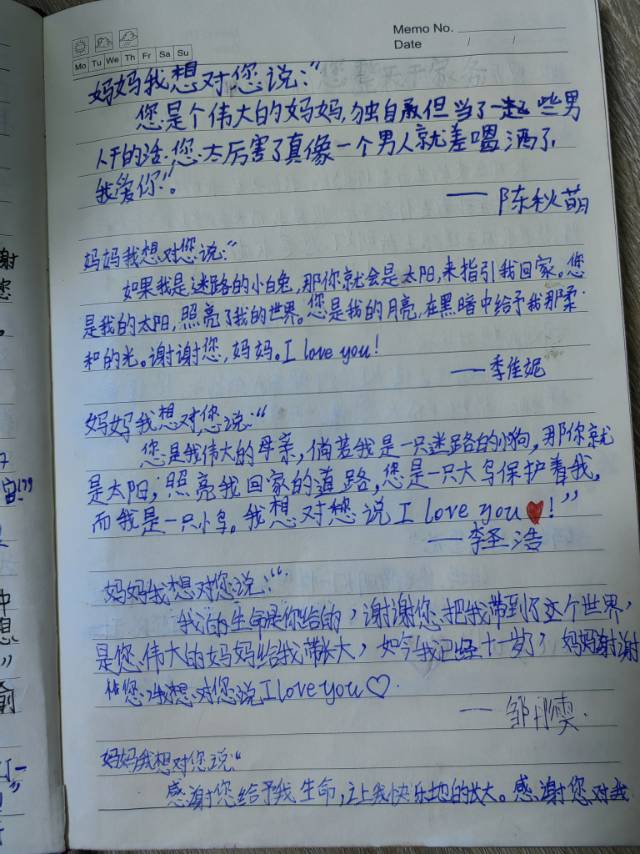 Memo No.
Date / /
Mo Tu We Th Fr Sa Su
妈妈我想对您说:“
您是个伟大的妈妈,独自承但当了一起些男
人干的活.您太厉害了真像一个男人就差喝酒了,
我爱你”。
——陈秋萌
妈妈我想对您说:“
如果我是迷路的小白兔,那你就会是太阳,来指引我回家。您
是我的太阳,照亮了我的世界。您是我的月亮,在黑暗中给予我那柔
和的光。谢谢您,妈妈。I love you!
——李佳妮
妈妈我想对您说:“
您是我伟大的母亲,倘若我是一只迷路的小狗,那你就
是太阳,照亮我回家的道路,您是一只大鸟保护着我,
而我是一只小鸟。我想对您说 I love you♥!”
——李圣浩
妈妈我想对您说:“
我的生命是你给的,谢谢您把我带到了这个世界,
是您伟大的妈妈给我带长大,如今我已经十一岁了,妈妈谢谢
您,我想对您说I love you♡.
——邹
妈妈我想对您说“
感谢您给予我生命,让我快乐地的长大。感谢您对我